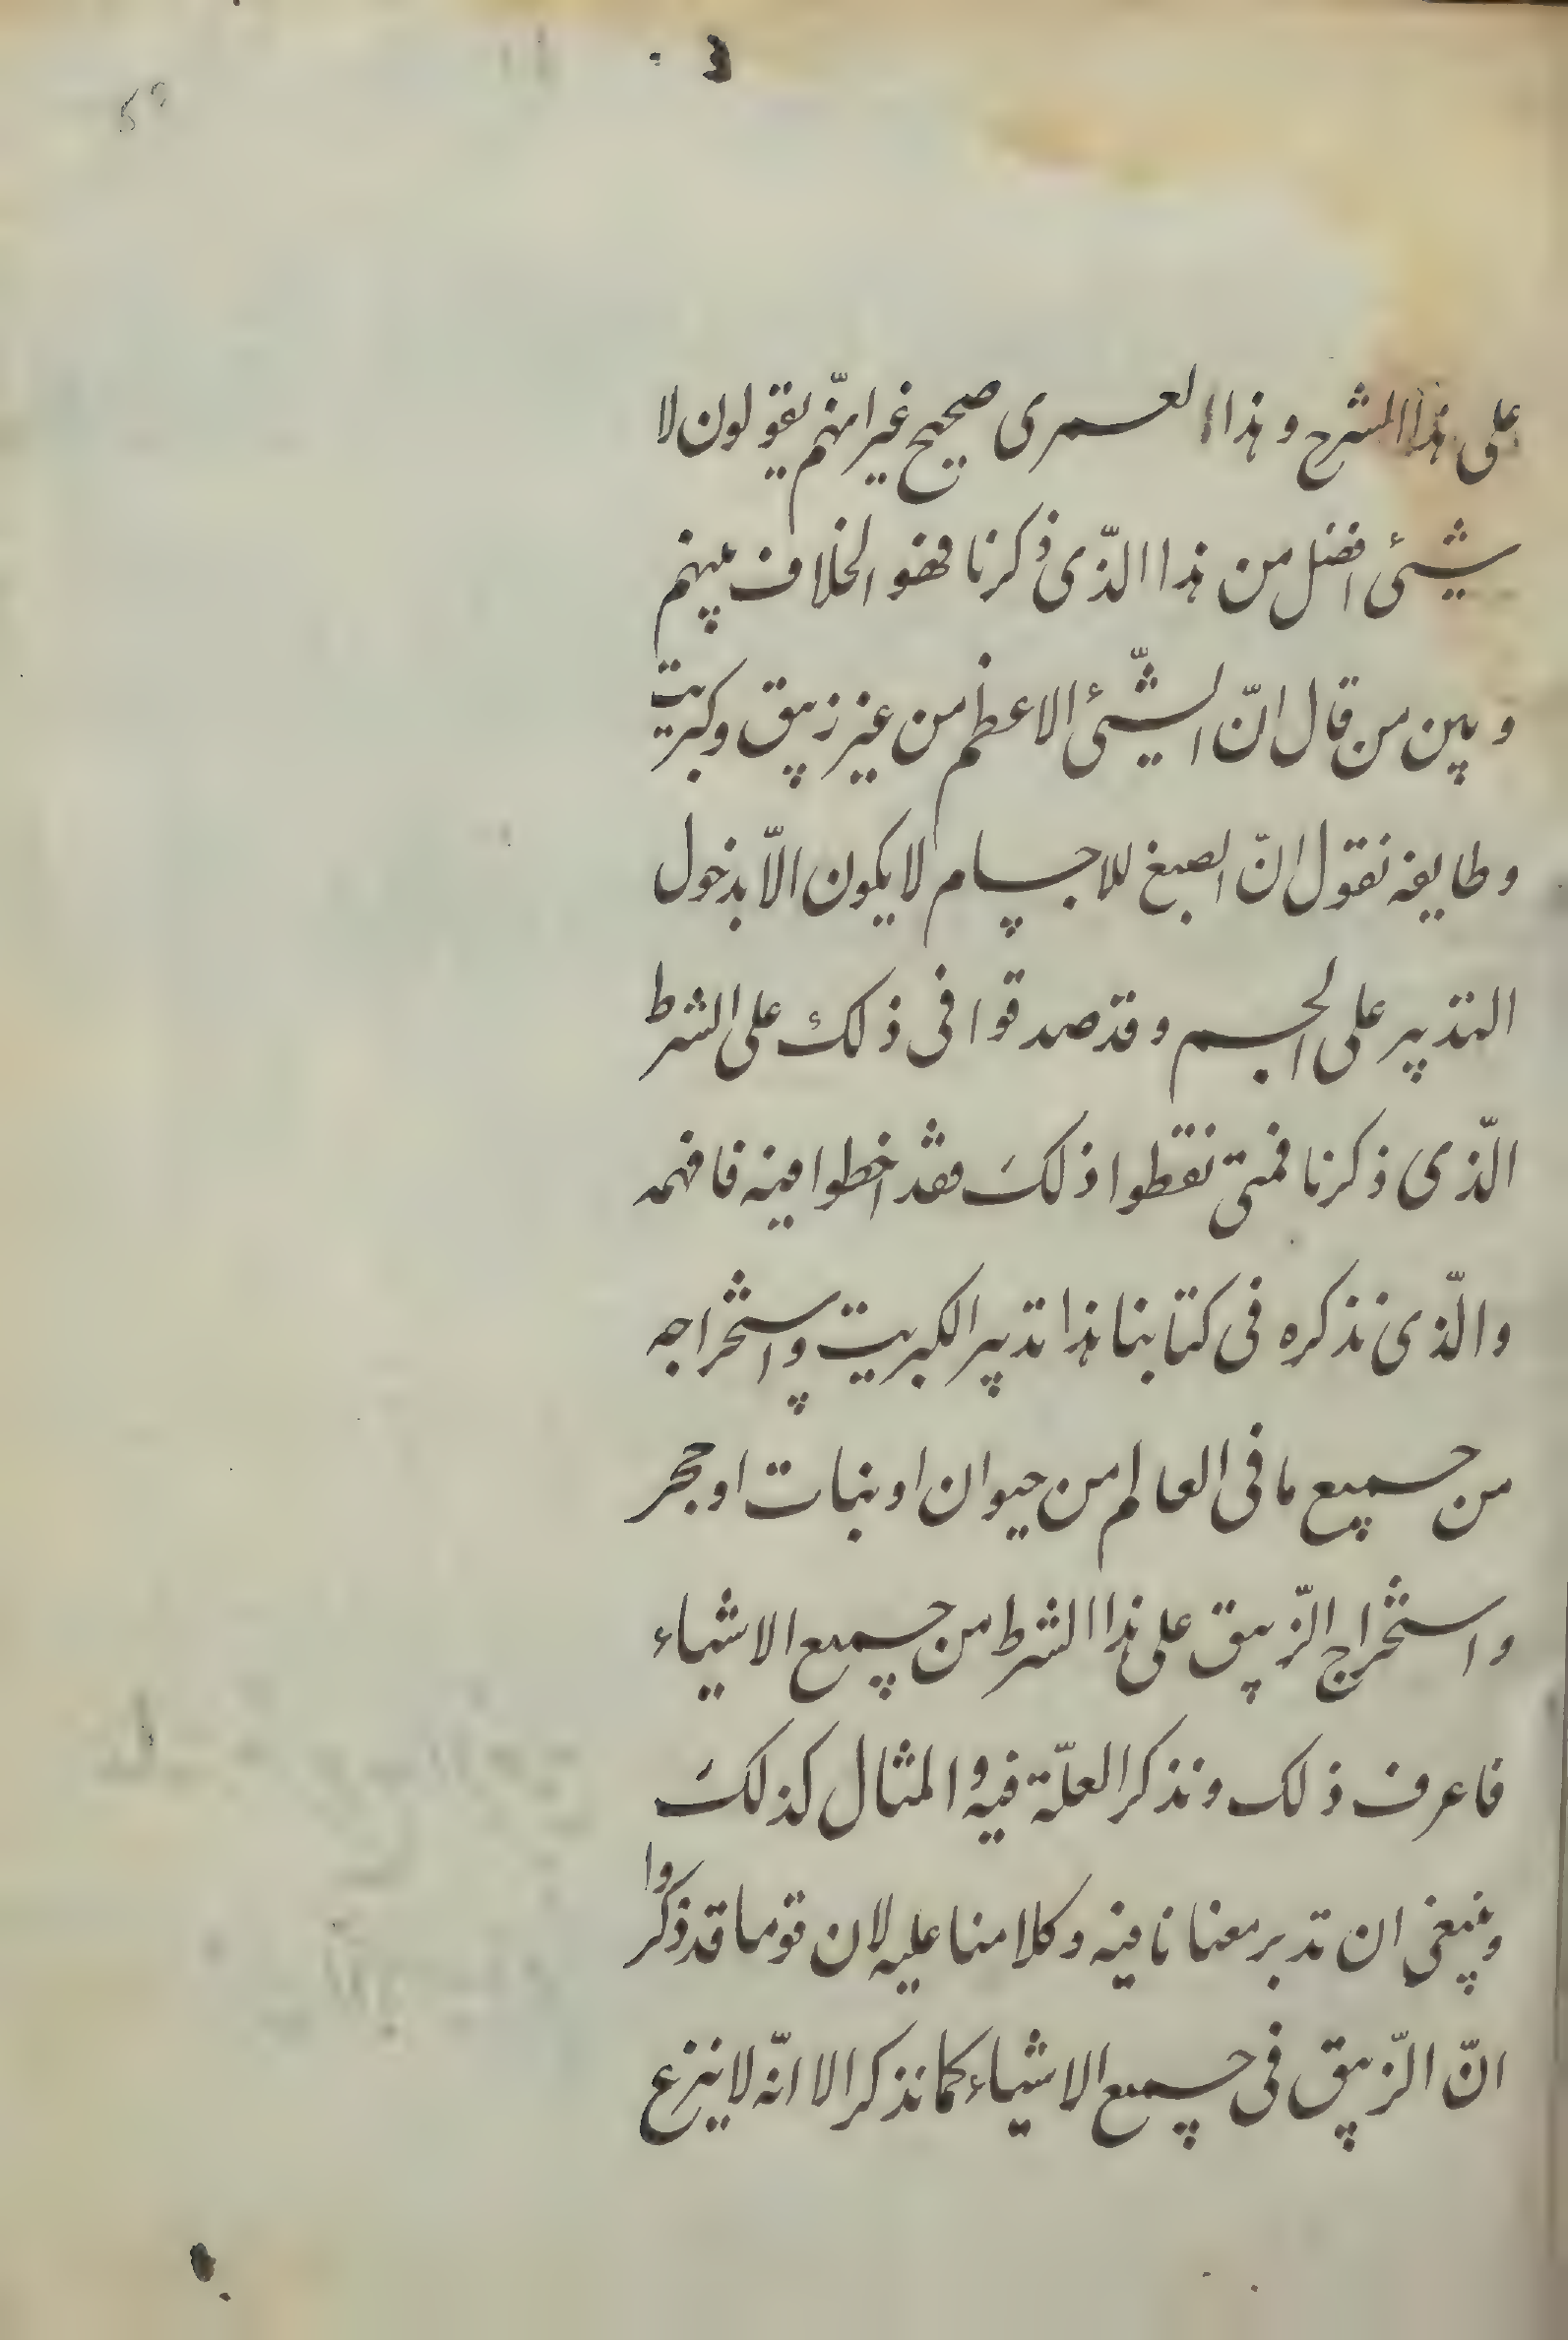 على هذا الشرح وهذا العمرى صحيح غير انهّم يقولون لا
شيئ افضل من هذا الذّى ذكرنا فهو الخلاف بينهم
وبين من قال انّ الشّيئ الاعظم من غير زيبق وكبريت
وطايفه تقول انّ الصبغ للاجسام لا يكون الاّ بدخول
التدبير على الجسم وقد صدقوا فى ذلك على الشرط
الّذى ذكرنا فمتى نقطوا ذلكَ فقد اخطوا فيه فافهمه
والّذى نذكره فى كتابنا هذا تدبير الكبريت واستخراجه
من جميع ما فى العالم من حيوان او نبات او حجر
واستخراج الزّيبق على هذا الشرط من جميع الاشياء
فاعرف ذلك ونذكر العلّة فيه والمثال كذلكَ
وينبغى ان تدبر معنانا فيه وكلامنا عليه لان قوما قد ذكروا
انّ الزّيبق فى جميع الاشياء كما نذكر الا انّه لا ينزع